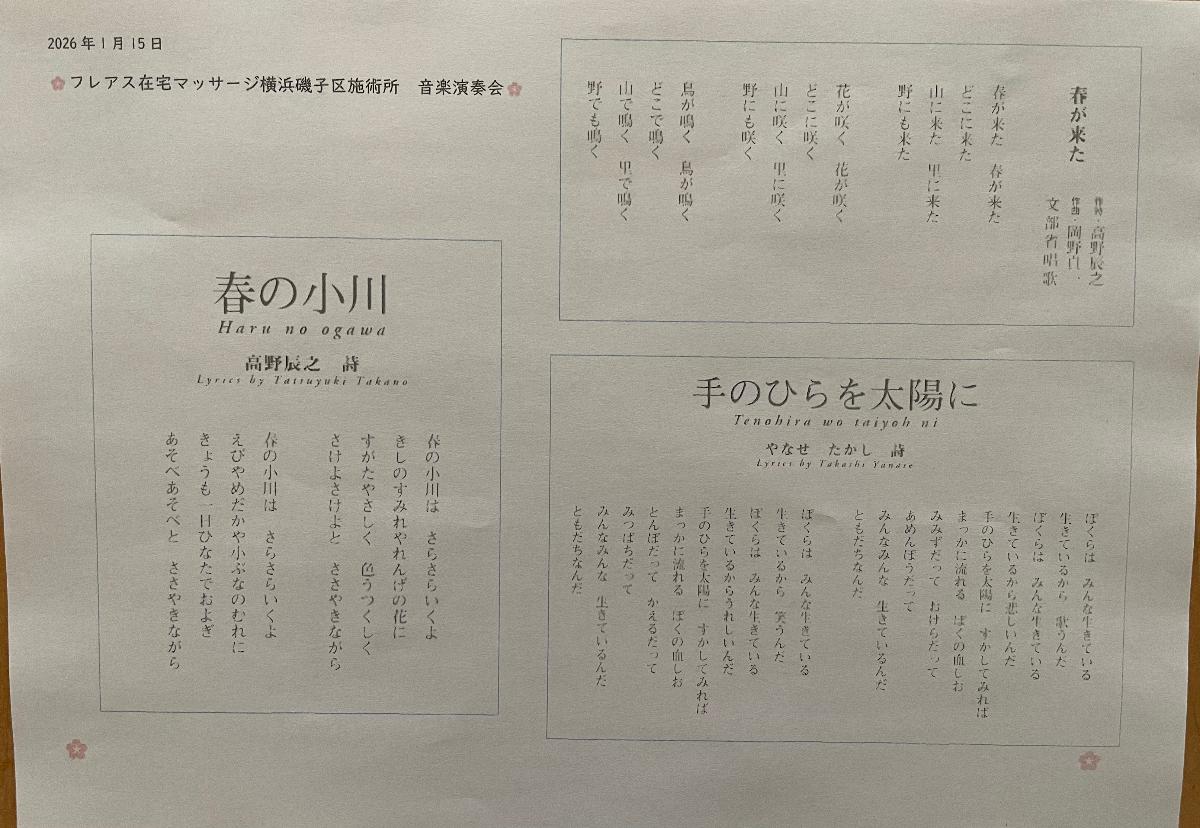 2026年1月15日
フレアス在宅マッサージ横浜磯子区施術所　音楽演奏会
春が来た
作詞・高野辰之
作曲・岡野貞一
文部省唱歌
春が来た　春が来た
どこに来た
山に来た　里に来た
野にも来た
花が咲く　花が咲く
どこに咲く
山に咲く　里に咲く
野にも咲く
鳥が鳴く　鳥が鳴く
どこで鳴く
山で鳴く　里で鳴く
野でも鳴く
春の小川
Haru no ogawa
高野辰之　詩
Lyrics by Tatsuyuki Takano
春の小川は　さらさらいくよ
きしのすみれやれんげの花に
すがたやさしく　色うつくしく
さけよさけよと　ささやきながら
春の小川は　さらさらいくよ
えびやめだかや小ぶなのむれに
きょうも一日ひなたでおよぎ
あそべあそべと　ささやきながら
手のひらを太陽に
Tenohira wo taiyoh ni
やなせ　たかし　詩
Lyrics by Takashi Yanase
ぼくらは　みんな生きている
生きているから　歌うんだ
ぼくらは　みんな生きている
生きているから悲しいんだ
手のひらを太陽に　すかしてみれば
まっかに流れる　ぼくの血しお
みみずだって　おけらだって
あめんぼうだって
みんなみんな　生きているんだ
ともだちなんだ
ぼくらは　みんな生きている
生きているから　笑うんだ
ぼくらは　みんな生きている
生きているからうれしいんだ
手のひらを太陽に　すかしてみれば
まっかに流れる　ぼくの血しお
とんぼだって　かえるだって
みつばちだって
みんなみんな　生きているんだ
ともだちなんだ